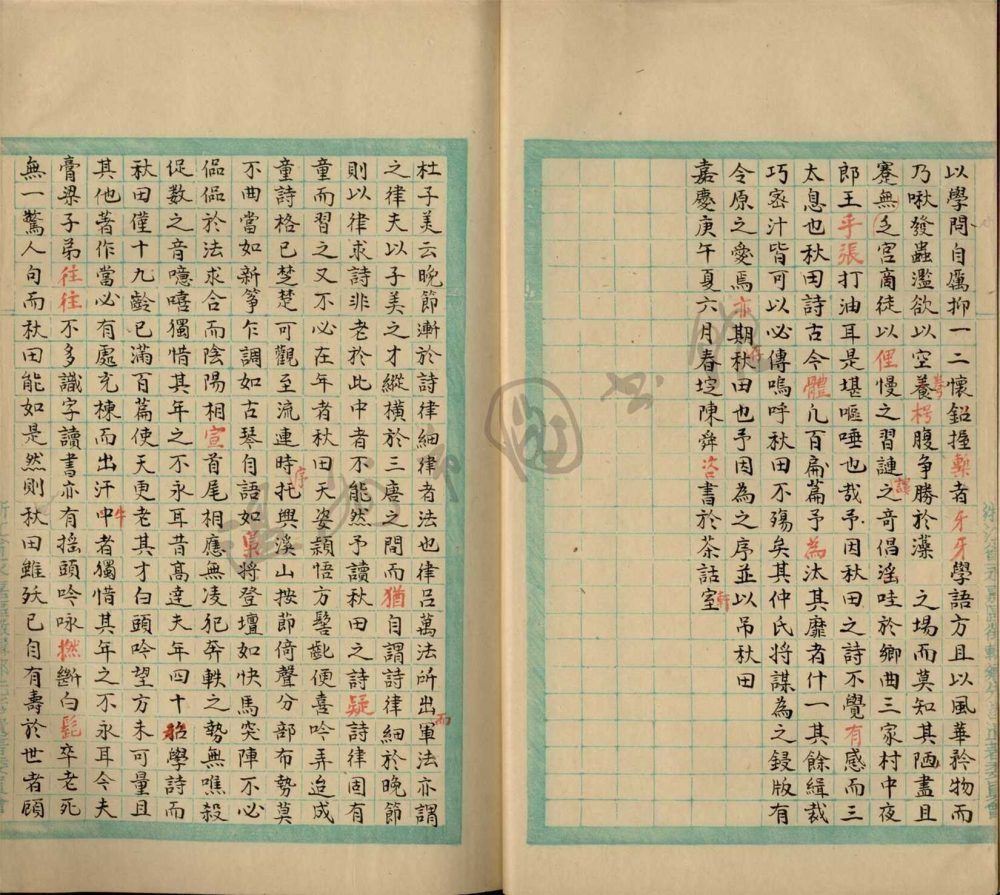 以學問自厲抑一二懷鉛握槧者牙牙學語方且以風華矜物而
乃啾發蟲濫欲以空養枵腹爭勝於藻之場而莫知其陋盡且
蹇無乏宮商徒以俚慢之習謎之奇倡淫哇於鄉曲三家村中夜
郎王乎張打油耳是堪嘔唾也哉予因秋田之詩不覺有感而三
太息也秋田詩古今體凡百扁篇予為汰其靡者什一其餘緝裁
巧密汁皆可以必傳嗚呼秋田不殤矣其仲氏將謀為之錄版有
令原之愛焉亦期秋田也予因為之序並以吊秋田
嘉慶庚午夏六月春埞陳舜咨書於茶話室軒
杜子美云晚節漸於詩律細律者法也律呂萬法所出軍法亦謂
之律夫以子美之才縱橫於三唐之間而猶自謂詩律細於晚節
則以律求詩非老於此中者不能然予讀秋田之詩疑詩律固有
童而習之又不必在年者秋田天姿穎悟方髫齔便喜吟弄迨成
童詩格已楚楚可觀至流連時托興溪山按節倚聲分部布勢莫
不曲當如新箏乍調如古琴自語如梟將登壇如快馬突陣不必
偘偘於法求合而陰陽相宣首尾相應無凌犯奔軼之勢無噍殺
促數之音噫嘻獨惜其年之不永耳昔高達夫年四十始學詩而
秋田僅十九齡已滿百篇使天更老其才白頭吟望方未可量且
其他著作當必有處充棟而出汗中牛者獨惜其年之不永耳今夫
膏粱子弟往往不多識字讀書亦有搖頭吟咏撚斷白髭卒老死
無一驚人句而秋田能如是然則秋田雖殀已自有壽於世者顧